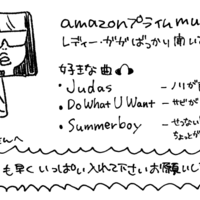 amazonプライムmu
レディー・ガガばっかり聞いて
好きな曲
・Judas －ノリが
・Do What U Want －サビが
・Summerboy －せつない
ちょっと
さんへ
も早くいっぱい入れて下さいお願いし